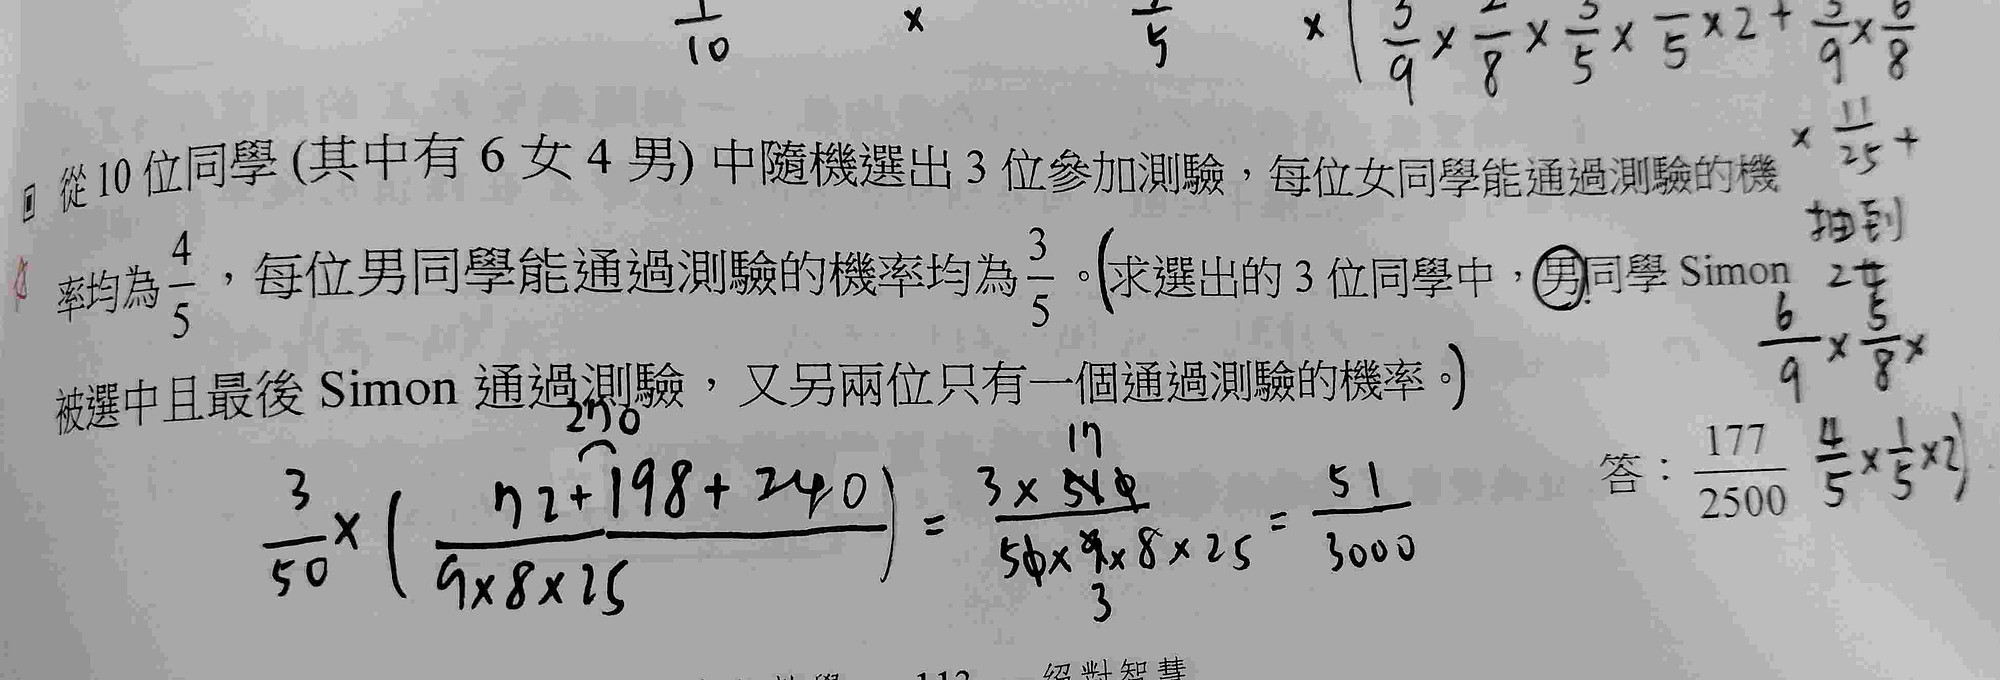 1/10 × 1/5 × ( 3/9 × 2/8 × 3/5 × /5 × 2 + 3/9 × 6/8
× 11/25 +
從 10 位同學 (其中有 6 女 4 男) 中隨機選出 3 位參加測驗，每位女同學能通過測驗的機
抽到
率均為 4/5 ，每位男同學能通過測驗的機率均為 3/5 。(求選出的 3 位同學中，男同學 Simon
2女
6/9 × 5/8 ×
被選中且最後 Simon 通過測驗，又另兩位只有一個通過測驗的機率。)
答：177/2500
4/5 × 1/5 × 2)
270
3/50 × ( 72 + 198 + 240 / 9 × 8 × 25 ) = 3 × 510 / 50 × 9 × 8 × 25 = 51/3000
17
3
112 絕對智慧